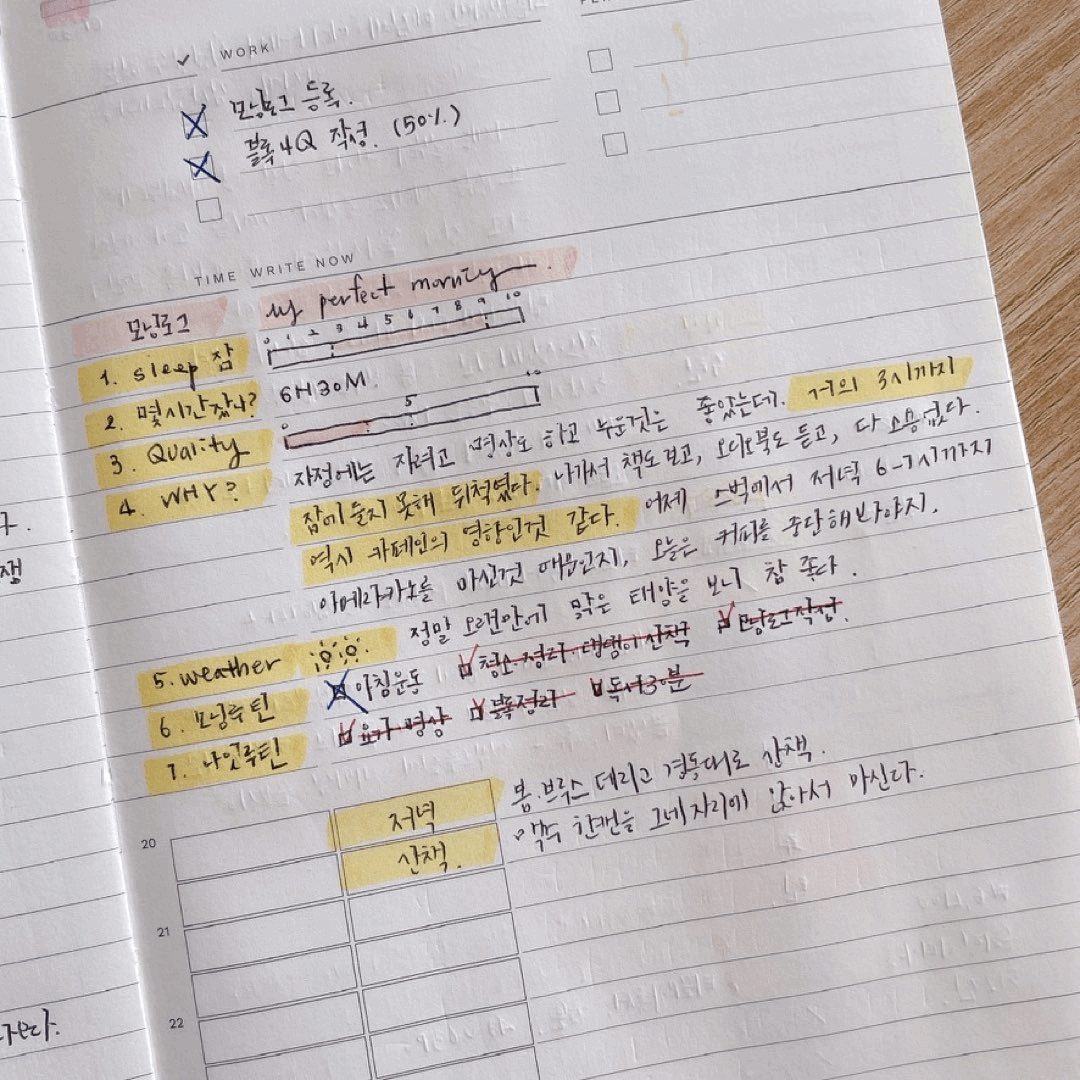 WORK
모닝로그 등록.
블록 4Q 작성. (50%)
TIME WRITE NOW
모닝로그 my perfect morning
0 1 2 3 4 5 6 7 8 9 10
1. sleep 잠
2. 몇시간 잤나? 6H30M.
5 10
3. Quality
4. WHY? 자정에는 자려고 명상도 하고 누운것은 좋았는데. 거의 3시까지
잠이 들지 못해 뒤척였다. 나가서 책도 보고, 오디오북도 듣고, 다 소용없다.
역시 카페인의 영향인것 같다. 어제 스벅에서 저녁 6-7시까지
아메리카노를 마신것 때문인지, 오늘은 커피를 중단해봐야지.
5. weather 정말 오랜만에 맑은 태양을 보니 참 좋다.
6. 모닝루틴 아침운동 청소정리 댕댕이산책 모닝로그작성.
7. 나잇루틴 요가 명상 블록정리 독서30분
20 저녁 봄.브루스 데리고 경동대로 산책.
산책. 맥주 한캔을 그네자리에 앉아서 마신다.
21
22